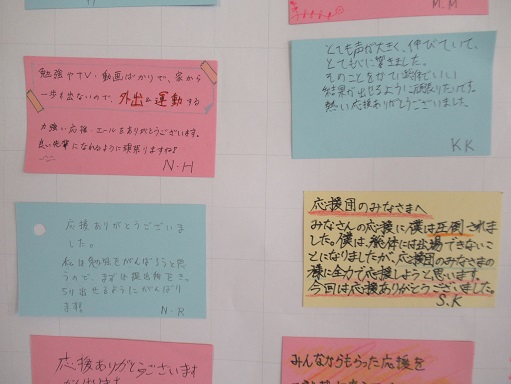 M.M
勉強やTV・動画ばかりで、家から
一歩も出ないので、外出&運動する
力強い応援・エールをありがとうございます。
良い先輩になれるように頑張りますね♪
N-H
とても声が大きく、伸びていて、
とても心に響きました。
そのことをかてに総体でいい
結果が出せるように頑張りたいです。
熱い応援ありがとうございました。
KK
応援ありがとうございま
した。
私は勉強をがんばろうと思
うので、まずは提出物をき
ちり出せるようにがんばり
ます!
N-R
応援団のみなさまへ
みなさんの応援に僕は圧倒されま
した。僕は、総体には出場できないこ
とになりましたが、応援団のみなさまの
様に全力で応援しようと思います。
今回は応援ありがとうございました。
S.K
応援ありがとうございます
みんなからもらった応援を